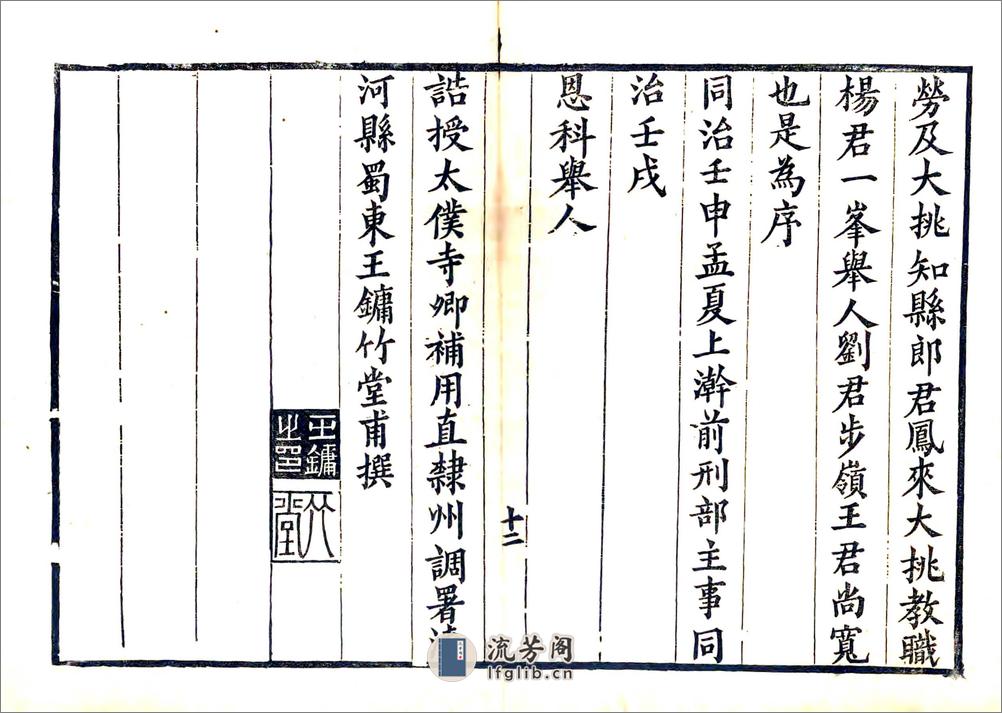 勞及大挑知縣郎君鳳來大挑教職
楊君一峯舉人劉君步嶺王君尚寬
也是為序
同治壬申孟夏上澣前刑部主事同
治壬戌
恩科舉人
十二
誥授太僕寺卿補用直隸州調署
河縣蜀東王鏞竹堂甫撰
王鏞之印
竹堂
流芳阁
lfglib.cn